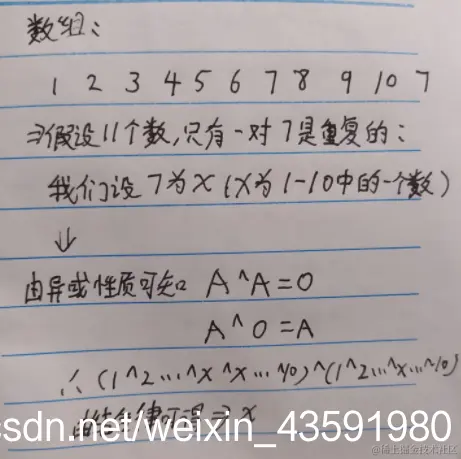 数组:
1 2 3 4 5 6 7 8 9 10 7
假设11个数,只有一对7是重复的:
我们设7为X(X为1-10中的一个数)
↓
由异或性质可知 A^A=0
A^0=A
∴(1^2...^x^x...^10)^(1^2...^x...^10)
csdn.net/weixin_43591980
@稀土掘金技术社区